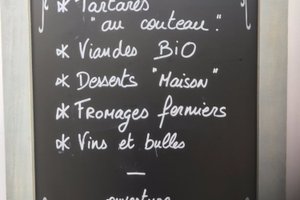 * Tartares
"au couteau".
* Viandes BiO
* Desserts "Maison"
* Fromages fermiers
* Vins et bulles
—
ouverture